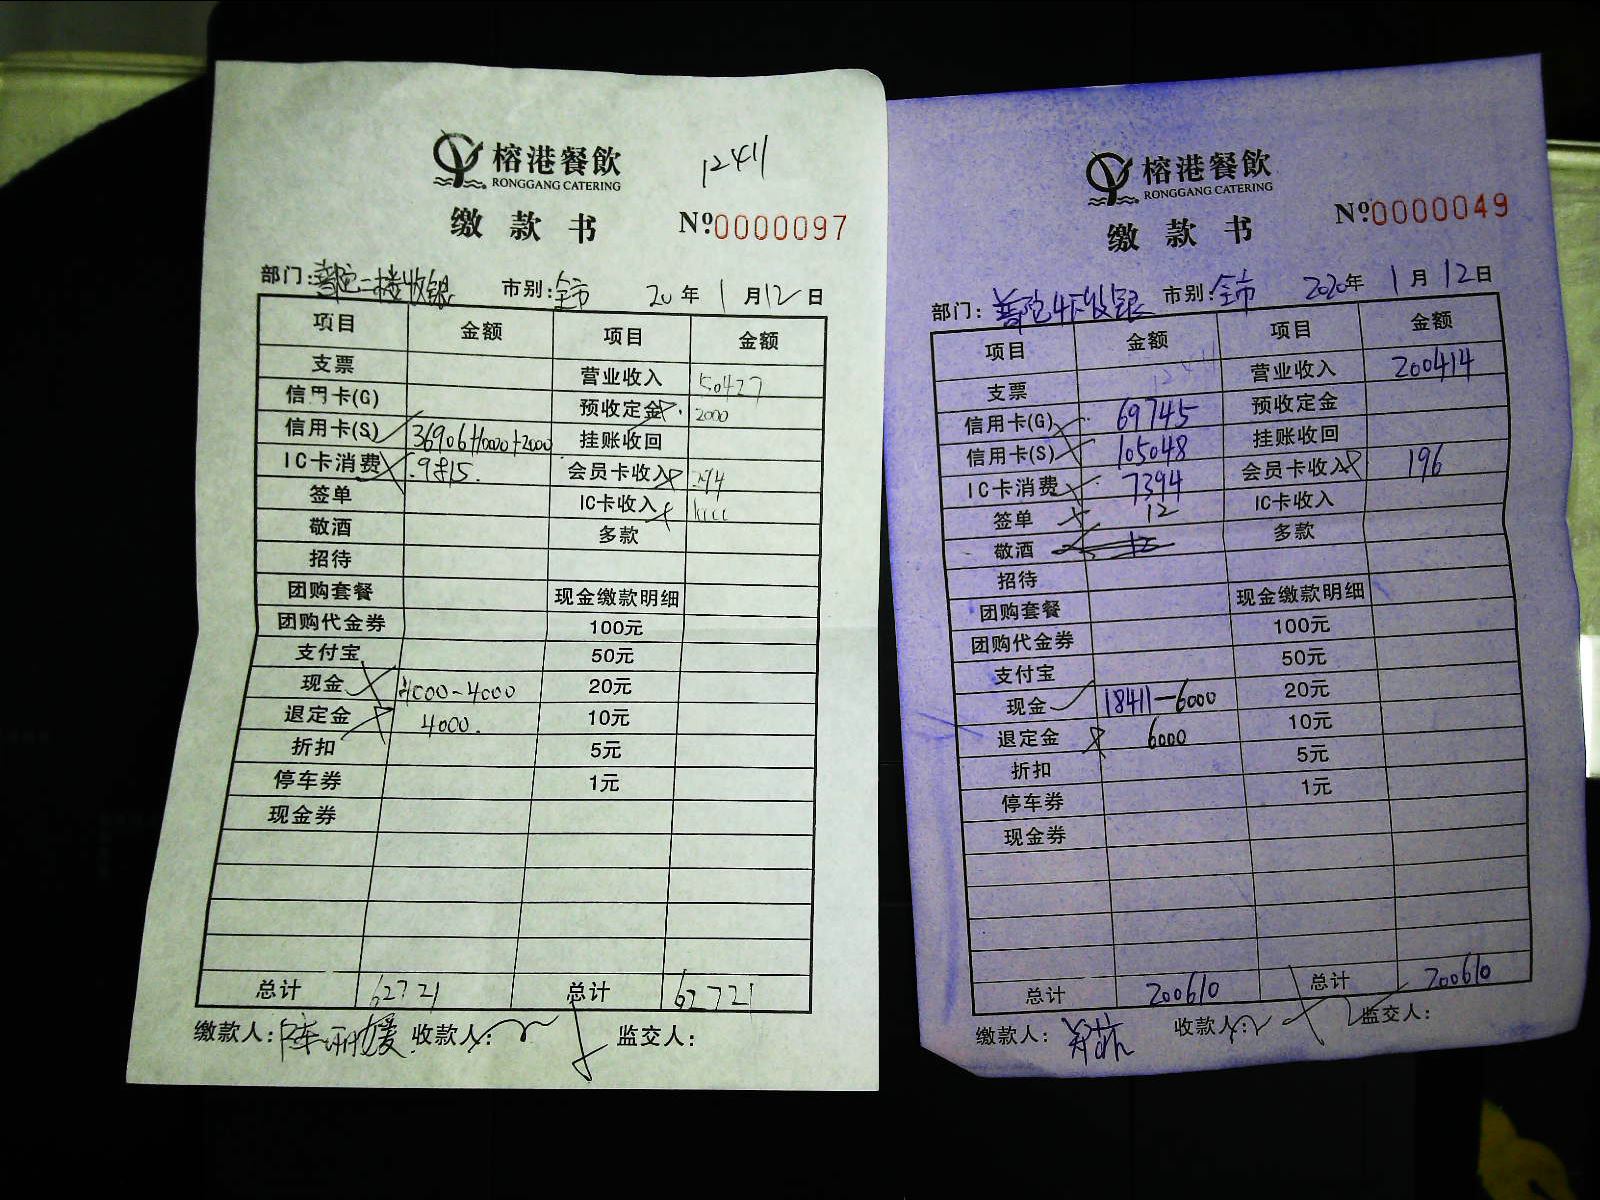 榕港餐飲
RONGGANG CATERING
12411
缴款书
Nº0000097
部门:普陀二楼收银 市别:全市 20年1月12日
项目 金额 项目 金额
支票 营业收入 50427
信用卡(G) 预收定金 2000
信用卡(S) 36906+10000+2000 挂账收回
IC卡消费 9815. 会员卡收入 294
签单 IC卡收入
敬酒 多款
招待
团购套餐 现金缴款明细
团购代金券 100元
支付宝 50元
现金 4000-4000 20元
退定金 4000. 10元
折扣 5元
停车券 1元
现金券
总计 62721 总计 62721
缴款人:陈 媛 收款人: 监交人:
榕港餐飲
RONGGANG CATERING
缴款书
Nº0000049
部门:普陀4F收银 市别:全市 2020年1月12日
项目 金额 项目 金额
支票 12411 营业收入 200414
信用卡(G) 69745 预收定金
信用卡(S) 105048 挂账收回
IC卡消费 7394 会员卡收入 196
签单 12 IC卡收入
敬酒 12 多款
招待
团购套餐 现金缴款明细
团购代金券 100元
支付宝 50元
现金 18411-6000 20元
退定金 6000 10元
折扣 5元
停车券 1元
现金券
总计 200610 总计 200610
缴款人: 收款人: 监交人: